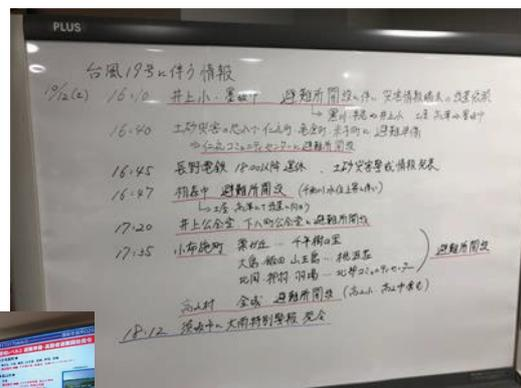 PLUS
台風19号に伴う情報
10/12(土) 16:10 井上小・墨坂中 避難所開設に伴い 災害情報端末の設置依頼
16:40 土砂災害の恐れで 仁礼町・亀倉町・米子町に避難準備
⇒仁礼コミュニティセンターに避難所開設
16:45 長野電鉄 18:00以降運休、土砂災害警戒情報発表
16:47 相森中 避難所開設 (千曲川水位上昇に伴い)
17:20 井上公会堂、下八町公会堂に避難所開設
17:35 小布施町 栗ガ丘… 千年樹の里
大島・飯田 山王島…
北岡・押羽 羽場… 北部コミュニティセンター
避難所開設
高山村 全域 避難所開設 (高山小・高山中含む)
18:12 須坂市に大雨特別警報 発令